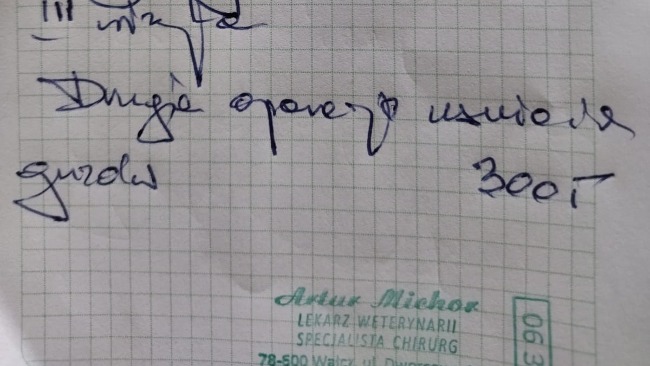 III
Druga operacja usunięcia
guzów 300,-
Artur Michor
LEKARZ WETERYNARII
SPECIALISTA CHIRURG
78-600 Wałcz, ul.
06 3